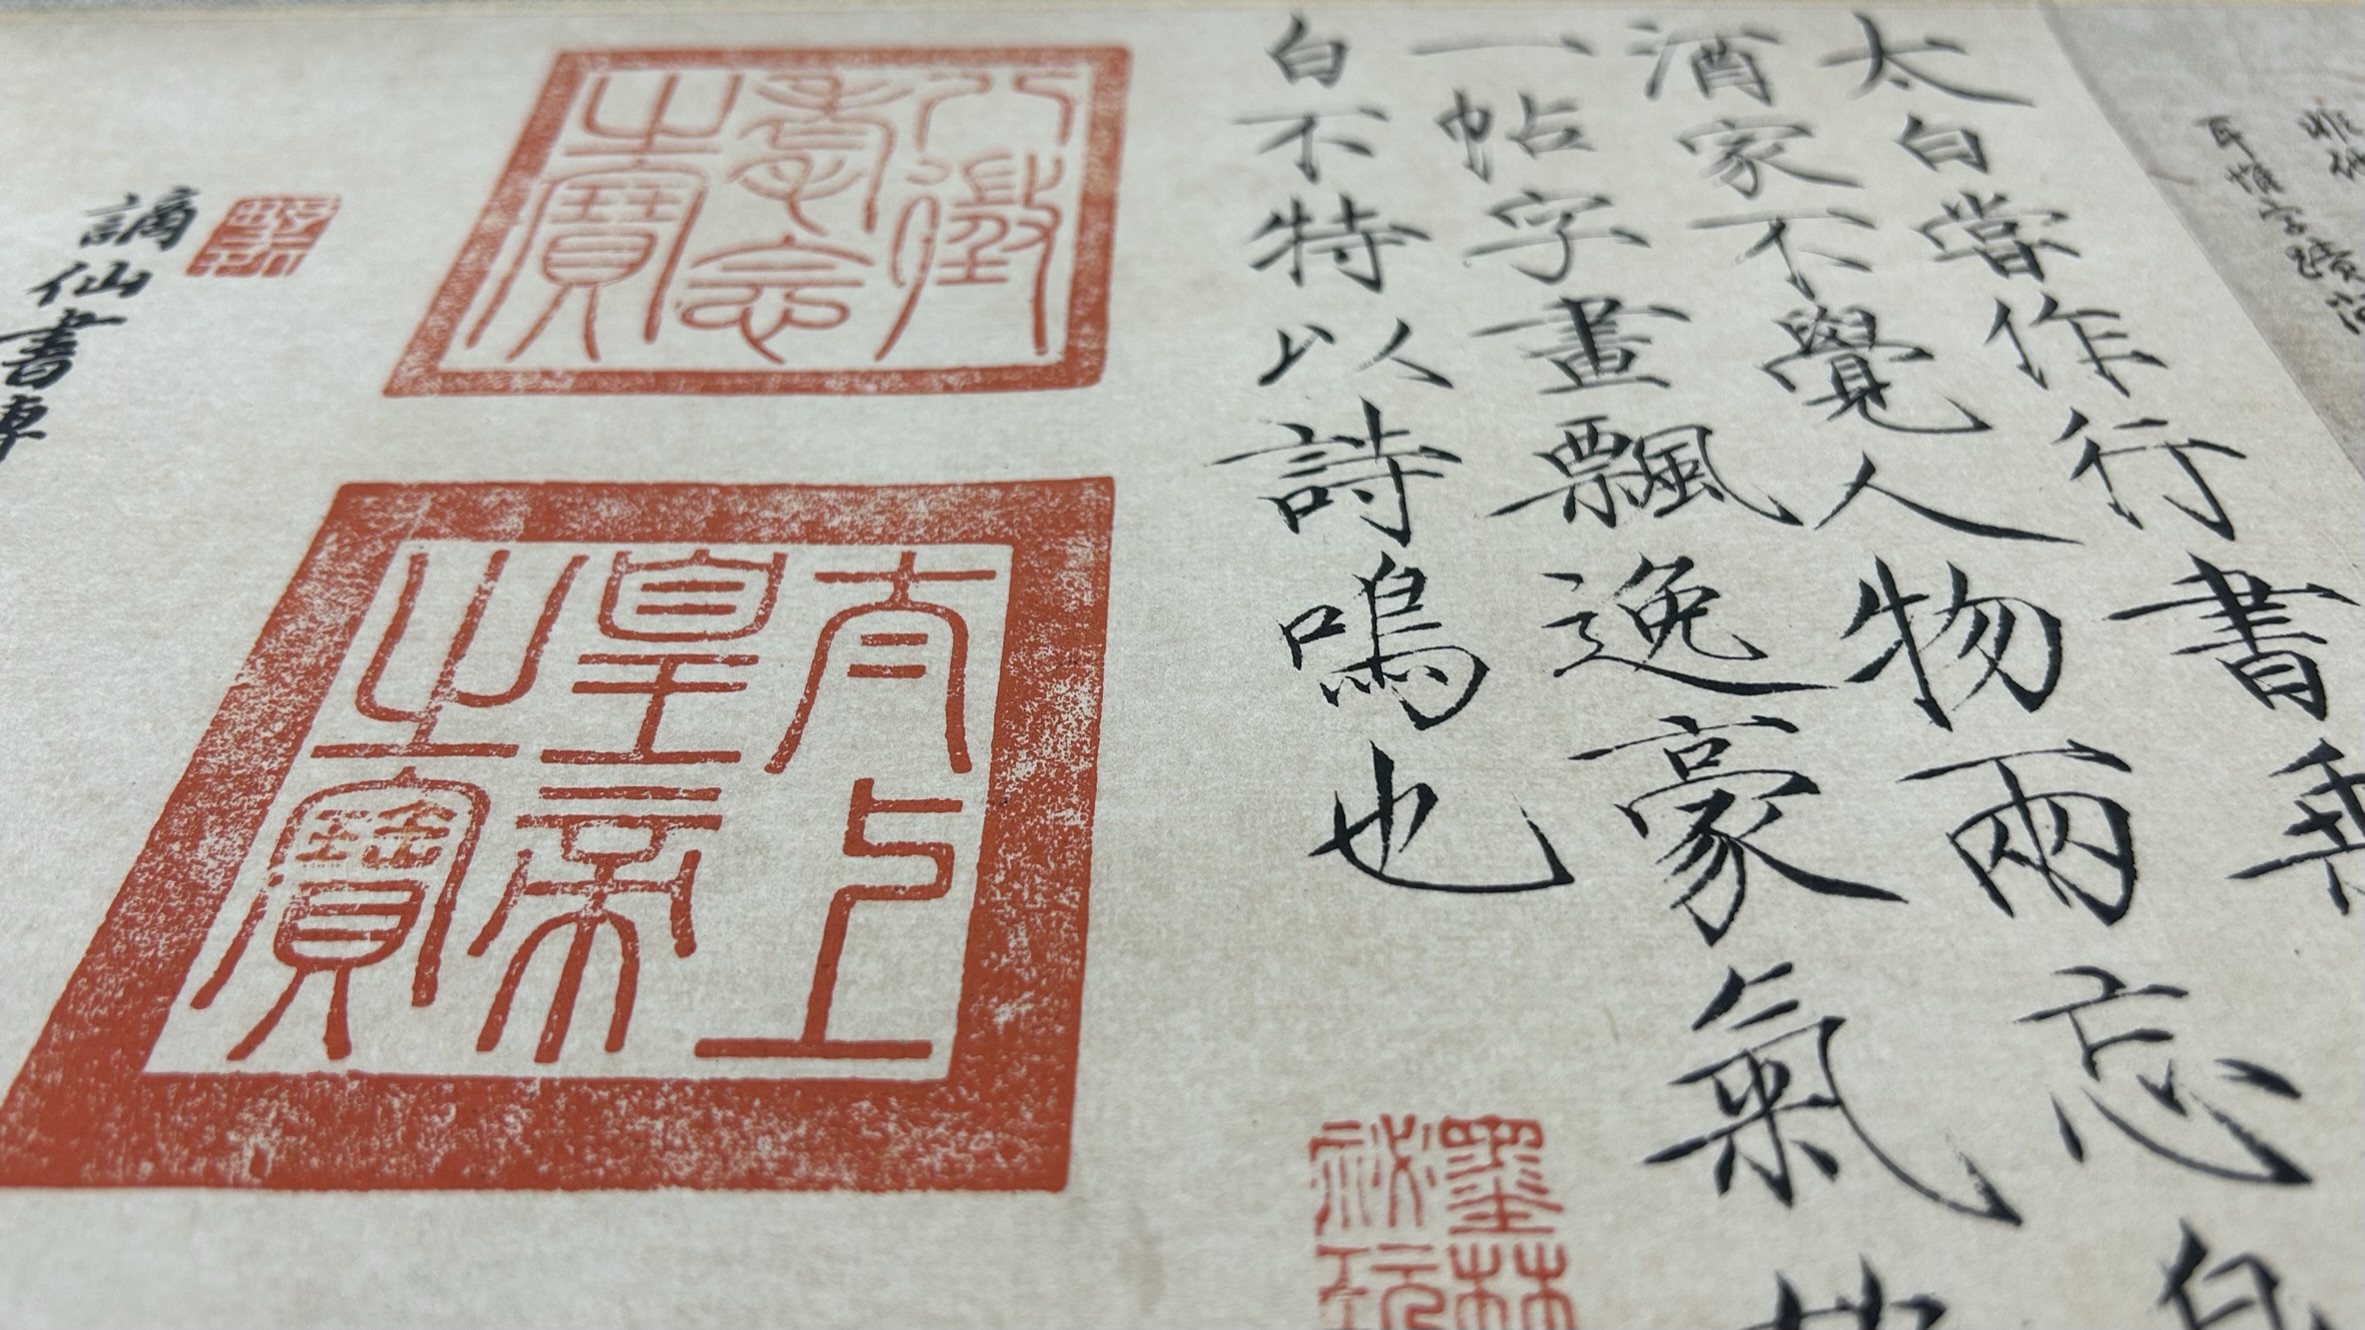 太白嘗作行書乘
酒家不覺人物兩忘
一帖字畫飄逸豪氣
白不特以詩鳴也
墨林
祕玩
八徵
耄念
之寶
太上
皇帝
之寶
謫仙書傳